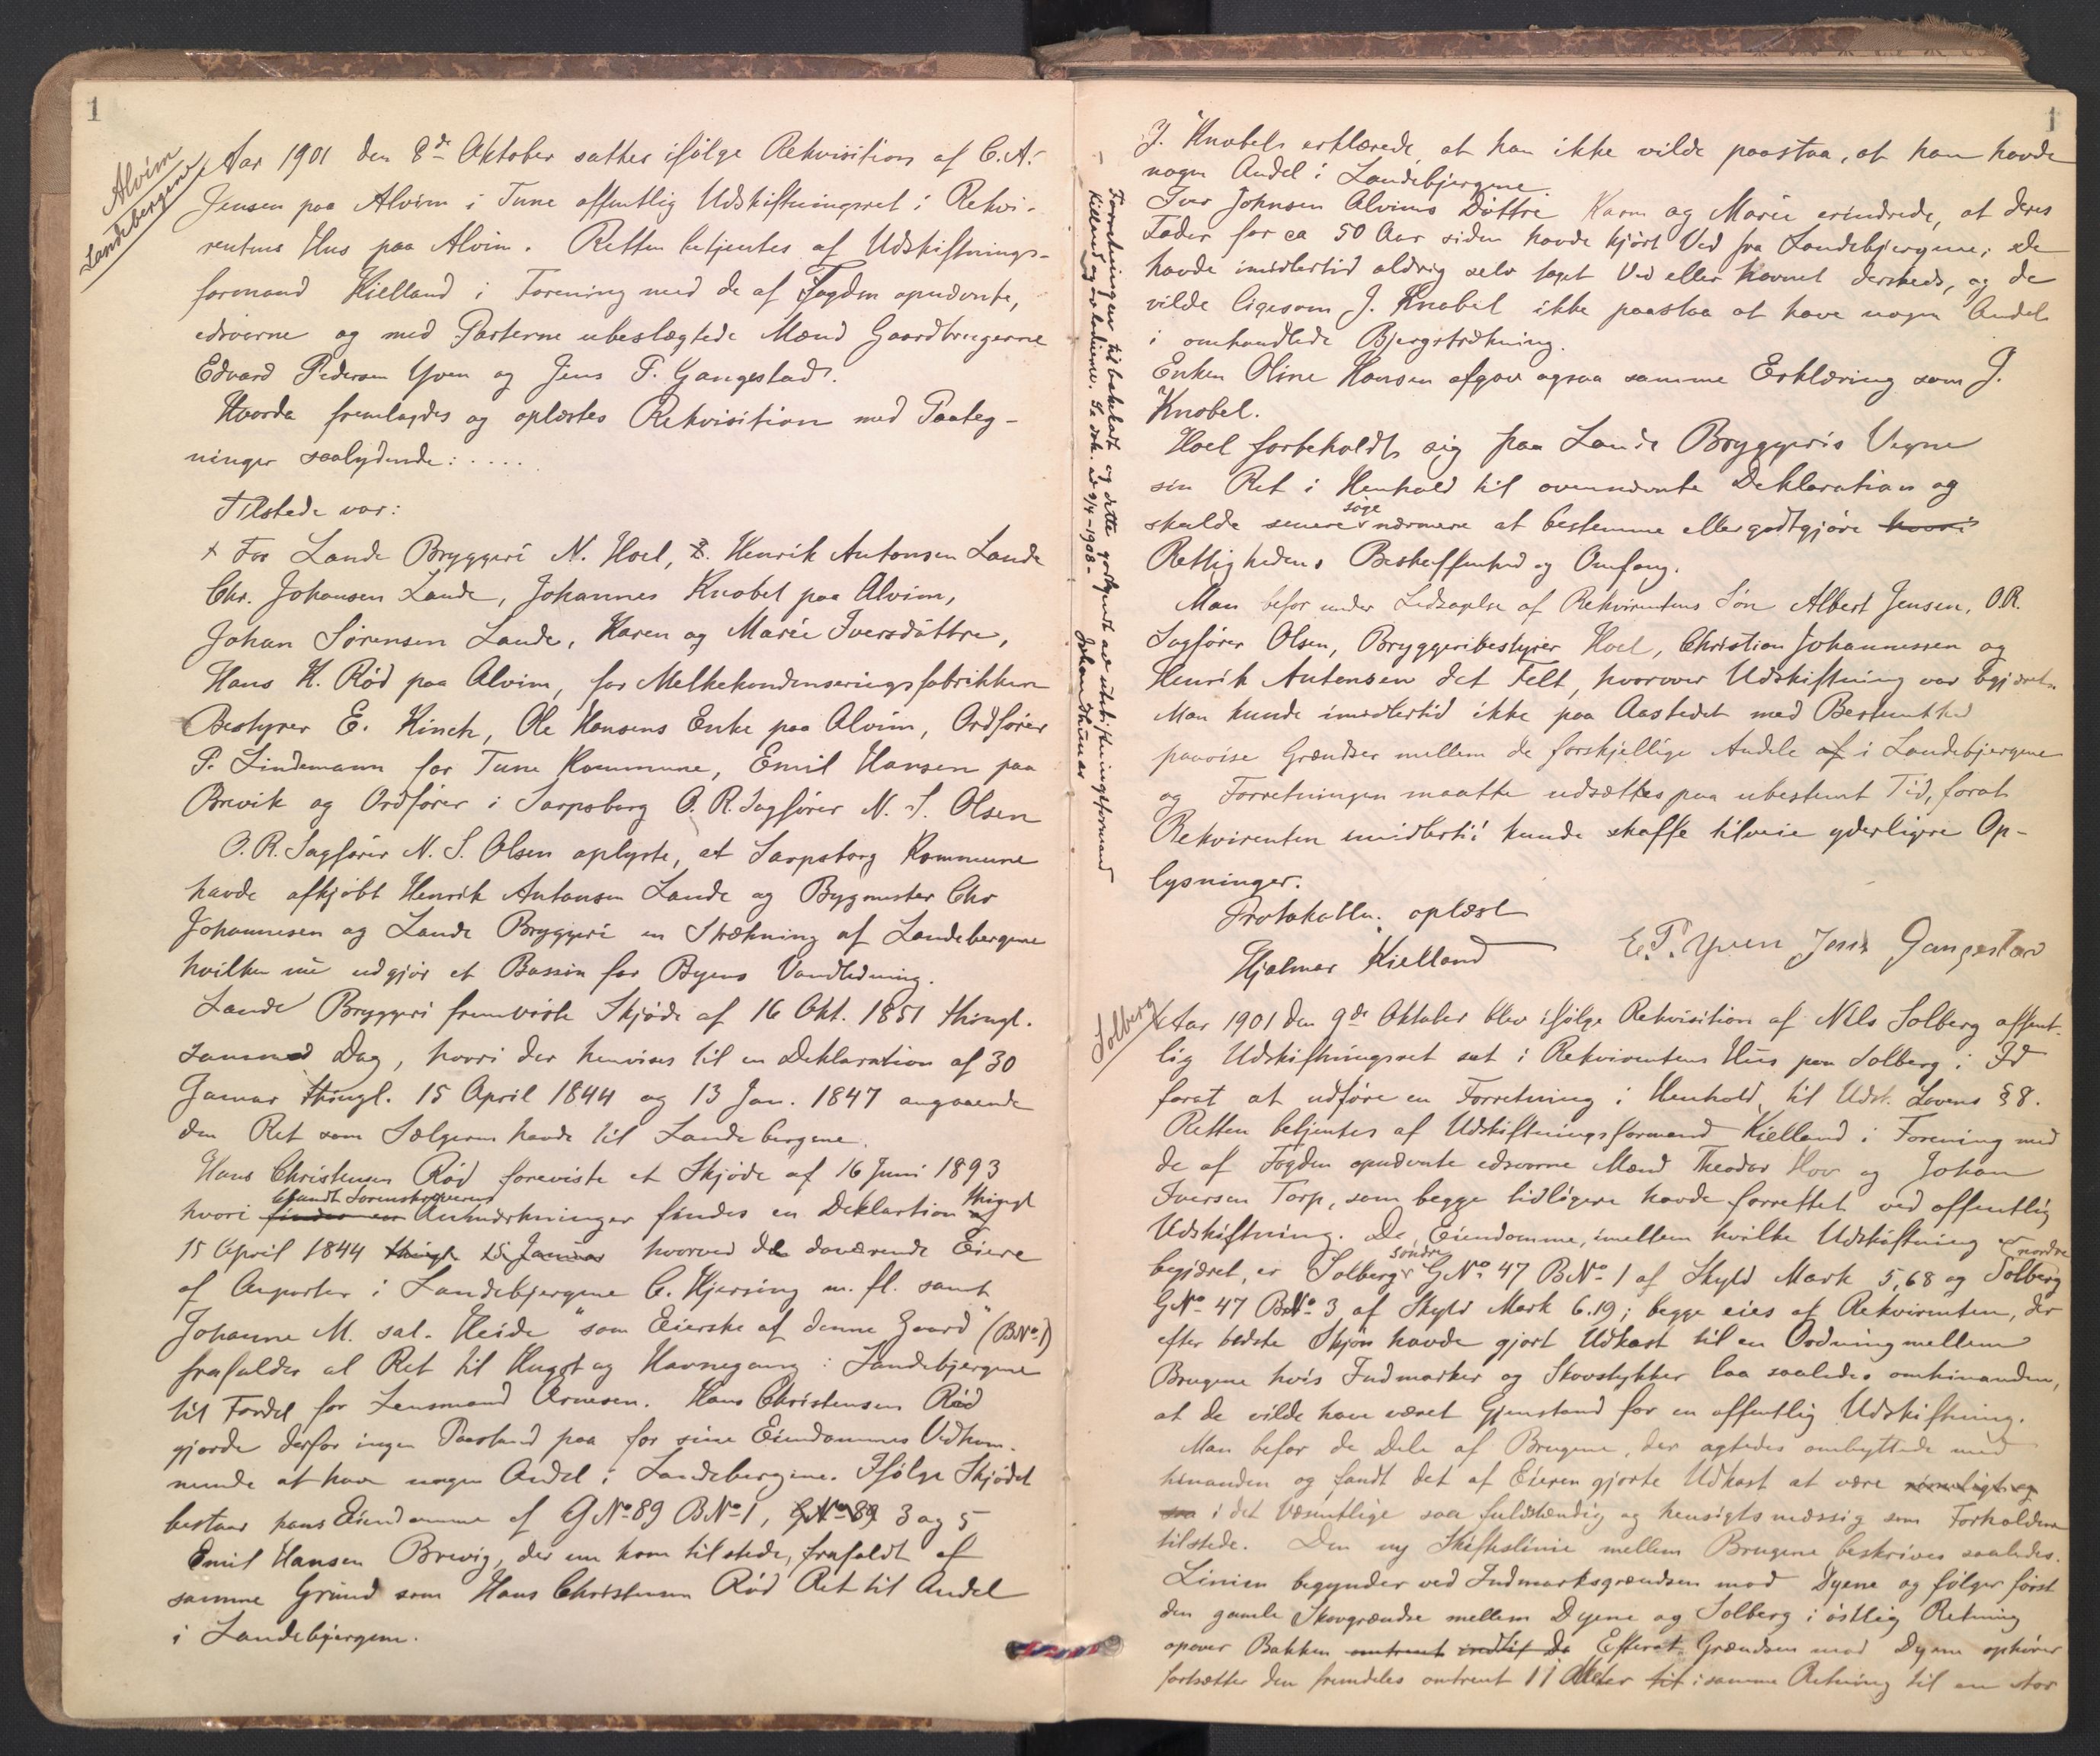 1
Alvim
Landebergene
Aar 1901 den 8de Oktober sattes ifølge Rekvisition af C. A.
Jensen paa Alvim i Tune offentlig Udskiftningsret i Rekvi-
rentens Hus paa Alvim. Retten betjentes af Udskiftnings-
formand Kielland i Forening med de af Fogden opnævnte,
edsvorne og med Parterne ubeslægtede Mænd Gaardbrugerne
Edvard Pedersen Yven og Jens F. Gangestad.
Hvorda fremlagdes og oplæstes Rekvisition med Paateg-
ninger saalydende: ....
Tilstede var:
+ For Lande Bryggeri N. Hoel, Henrik Antonsen Lande
Chr. Johansen Lande, Johannes Knobel paa Alvim,
Johan Sørensen Lande, Karen og Marie Iversdøttre,
Hans K. Rød paa Alvim, for Melkekondenseringsfabrikken
Bestyrer E. Kinch, Ole Hansens Enke paa Alvim, Ordfører
P. Lindemann for Tune Kommune, Emil Hansen paa
Brevik og Ordfører i Sarpsborg O. R. Sagfører N. S. Olsen
O. R. Sagfører N. S. Olsen oplyste, at Sarpsborg Kommune
havde afkjøbt Henrik Antonsen Lande og Bygmester Chr
Johannesen og Lande Bryggeri en Strækning af Landebergene
hvilken nu udgjør et Bassin for Byens Vandledning.
Lande Bryggeri fremviste Skjøde af 16 Okt. 1851 thingl.
samme Dag, hvori der henvises til en Deklaration af 30
Januar thingl. 15 April 1844 og 13 Jan. 1847 angaaende
den Ret som Sælgeren havde til Landebergene.
Hans Christensen Rød foreviste et Skjøde af 16 Juni 1893
blandt Sorenskriverens thingl
hvori findes en Anmærkninger findes en Deklartion af
15 April 1844 thingl. 15 Januar hvorved de daværende Eiere
af Anparter i Landebjergene C. Hjersing m. fl. samt
Johanne M. sal. Heide "som Eierske af denne Gaard" (BNo 1)
frafalder al Ret til Hugst og Havnegang i Landebjergene
til Fordel for Lensmand Arnesen. Hans Christensen Rød
gjorde derfor ingen Paastand paa for sine Eiendommes Vedkom-
mende at have nogen Andel i Landebergene. Ifølge Skjødet
bestaar hans Eiendomme af GNo 89 BNo 1, GNo 89 3 og 5
Emil Hansen Brevig, der nu kom tilstede, frafaldt af
samme Grund som Hans Christensen Rød Ret til Andel
i Landebjergene.
Forretningen tilbakekaldt og dette godkjendt av utskiftningsformand
Kielland og v.
Johan Thunæs
1
J. Knobel erklærede, at han ikke vilde paastaa, at han havde
nogen Andel i Landebjergene.
Iver Johnsen Alvims Døttre Karen og Marie erindrede, at deres
Fader for ca 50 Aar siden havde kjørt Ved fra Landebjergene; de
havde imidlertid aldrig selv taget Ved eller havnet dersteds, og de
vilde ligesom J. Knobel ikke paastaa at have nogen Andel
i omhandlede Bjergstrækning.
Enken Oline Hansen afgav ogsaa samme Erklæring som J.
Knobel.
Hoel forbeholdt sig paa Lande Bryggeris Vegne
sin Ret i Henhold til ovennævnte Deklaration og
søge
skulde senere nærmere at bestemme eller godtgjøre hvori
Rettighedens Beskaffenhed og Omfang.
Man befor under Ledsagelse af Rekvirentens Søn Albert Jensen, O.R.
Sagfører Olsen, Bryggeribestyrer Hoel, Christian Johannessen og
Henrik Antonsen det Felt, hvorover Udskiftning var begjæret.
Man kunde imidlertid ikke paa Aastedet med Bestemthed
paavise Grændser mellem de forskjellige Andele af i Landebjergene
og Forretningen maatte udsættes paa ubestemt Tid, forat
Rekvirenten imidlertid kunde skaffe tilveie yderligere Op-
lysninger.
Protokollen oplæst
Hjalmar Kielland E. P. Yven Jens Gangestad
Solberg
Aar 1901 den 9de Oktober blev ifølge Rekvisition af Nils Solberg offent-
lig Udskiftningsret sat i Rekvirentens Hus paa Solberg i Id
forat at udføre en Forretning i Henhold til Udsk. Lovens § 8.
Retten betjentes af Udskiftningsformand Kielland i Forening med
de af Fogden opnævnte edsvorne Mænd Theodor Hov og Johan
Iversen Torp, som begge tidligere havde forrettet ved offentlig
Udskiftning. De Eiendomme, imellem hvilke Udskiftning er
søndre nordre
begjæret, er Solberg GNo 47 BNo 1 af Skyld Mark 5,68 og Solberg
GNo 47 BNo 3 af Skyld Mark 6.19; begge eies af Rekvirenten, der
efter bedste Skjøn havde gjort Udkast til en Ordning mellem
Brugene hvis Indmarker og Skovstykker laa saaledes omhinanden,
at de vilde have været Gjenstand for en offentlig Udskiftning.
Man befor de Dele af Brugene, der agtedes ombyttede med
hinanden og fandt det af Eieren gjorte Udkast at være rimeligt og
saa i det Væsentlige saa fuldstændig og hensigtsmæssig som Forholdene
tilstede. Den ny Skiftslinie mellem Brugene beskrives saaledes.
Linien begynder ved Indmarksgrændsen mod Dyene og følger først
den gamle Skovgrændse mellem Dyene og Solberg i østlig Retning
opover Bakken omtrent indtil De Efterat Grændsen mod Dyene ophører
fortsætter den fremdeles omtrent 11 Meter til i samme Retning til en stor